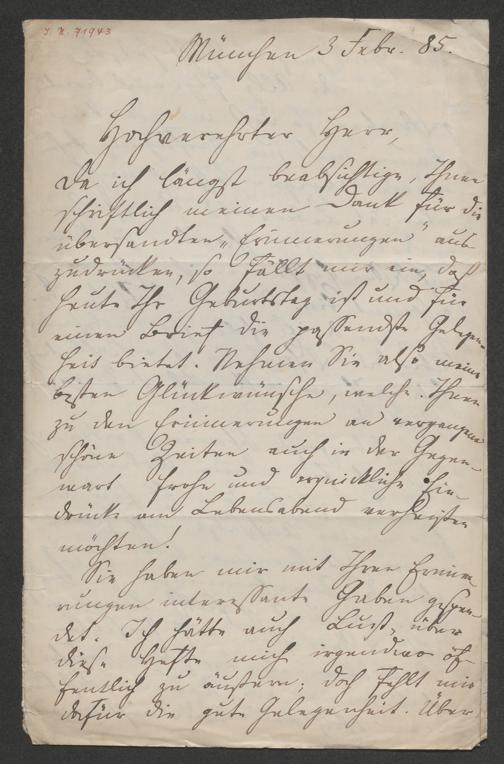 J. N. 71943
München 3 Febr. 85.
Hochverehrter Herr,
Da ich längst beabsichtige, Ihnen
schriftlich meinen Dank für die
übersandten „Erinnerungen" aus-
zudrücken, so fällt mir ein, daß
heute Ihr Geburtstag ist und für
einen Brief die passendste Gelegen-
heit bietet. Nehmen Sie also meine
besten Glückwünsche, welche Ihnen
zu den Erinnerungen an vergangene
schöne Zeiten auch in der Gegen-
wart frohe und erquickliche Ein-
drücke am Lebensabend verheißen
möchten!
Sie haben mir mit Ihren Erinne-
rungen interessante Gaben gespen-
det. Ich hätte auch Lust, über
diese Hefte mich irgendwo öf-
fentlich zu äußern; doch fehlt mir
dafür die gute Gelegenheit. Über